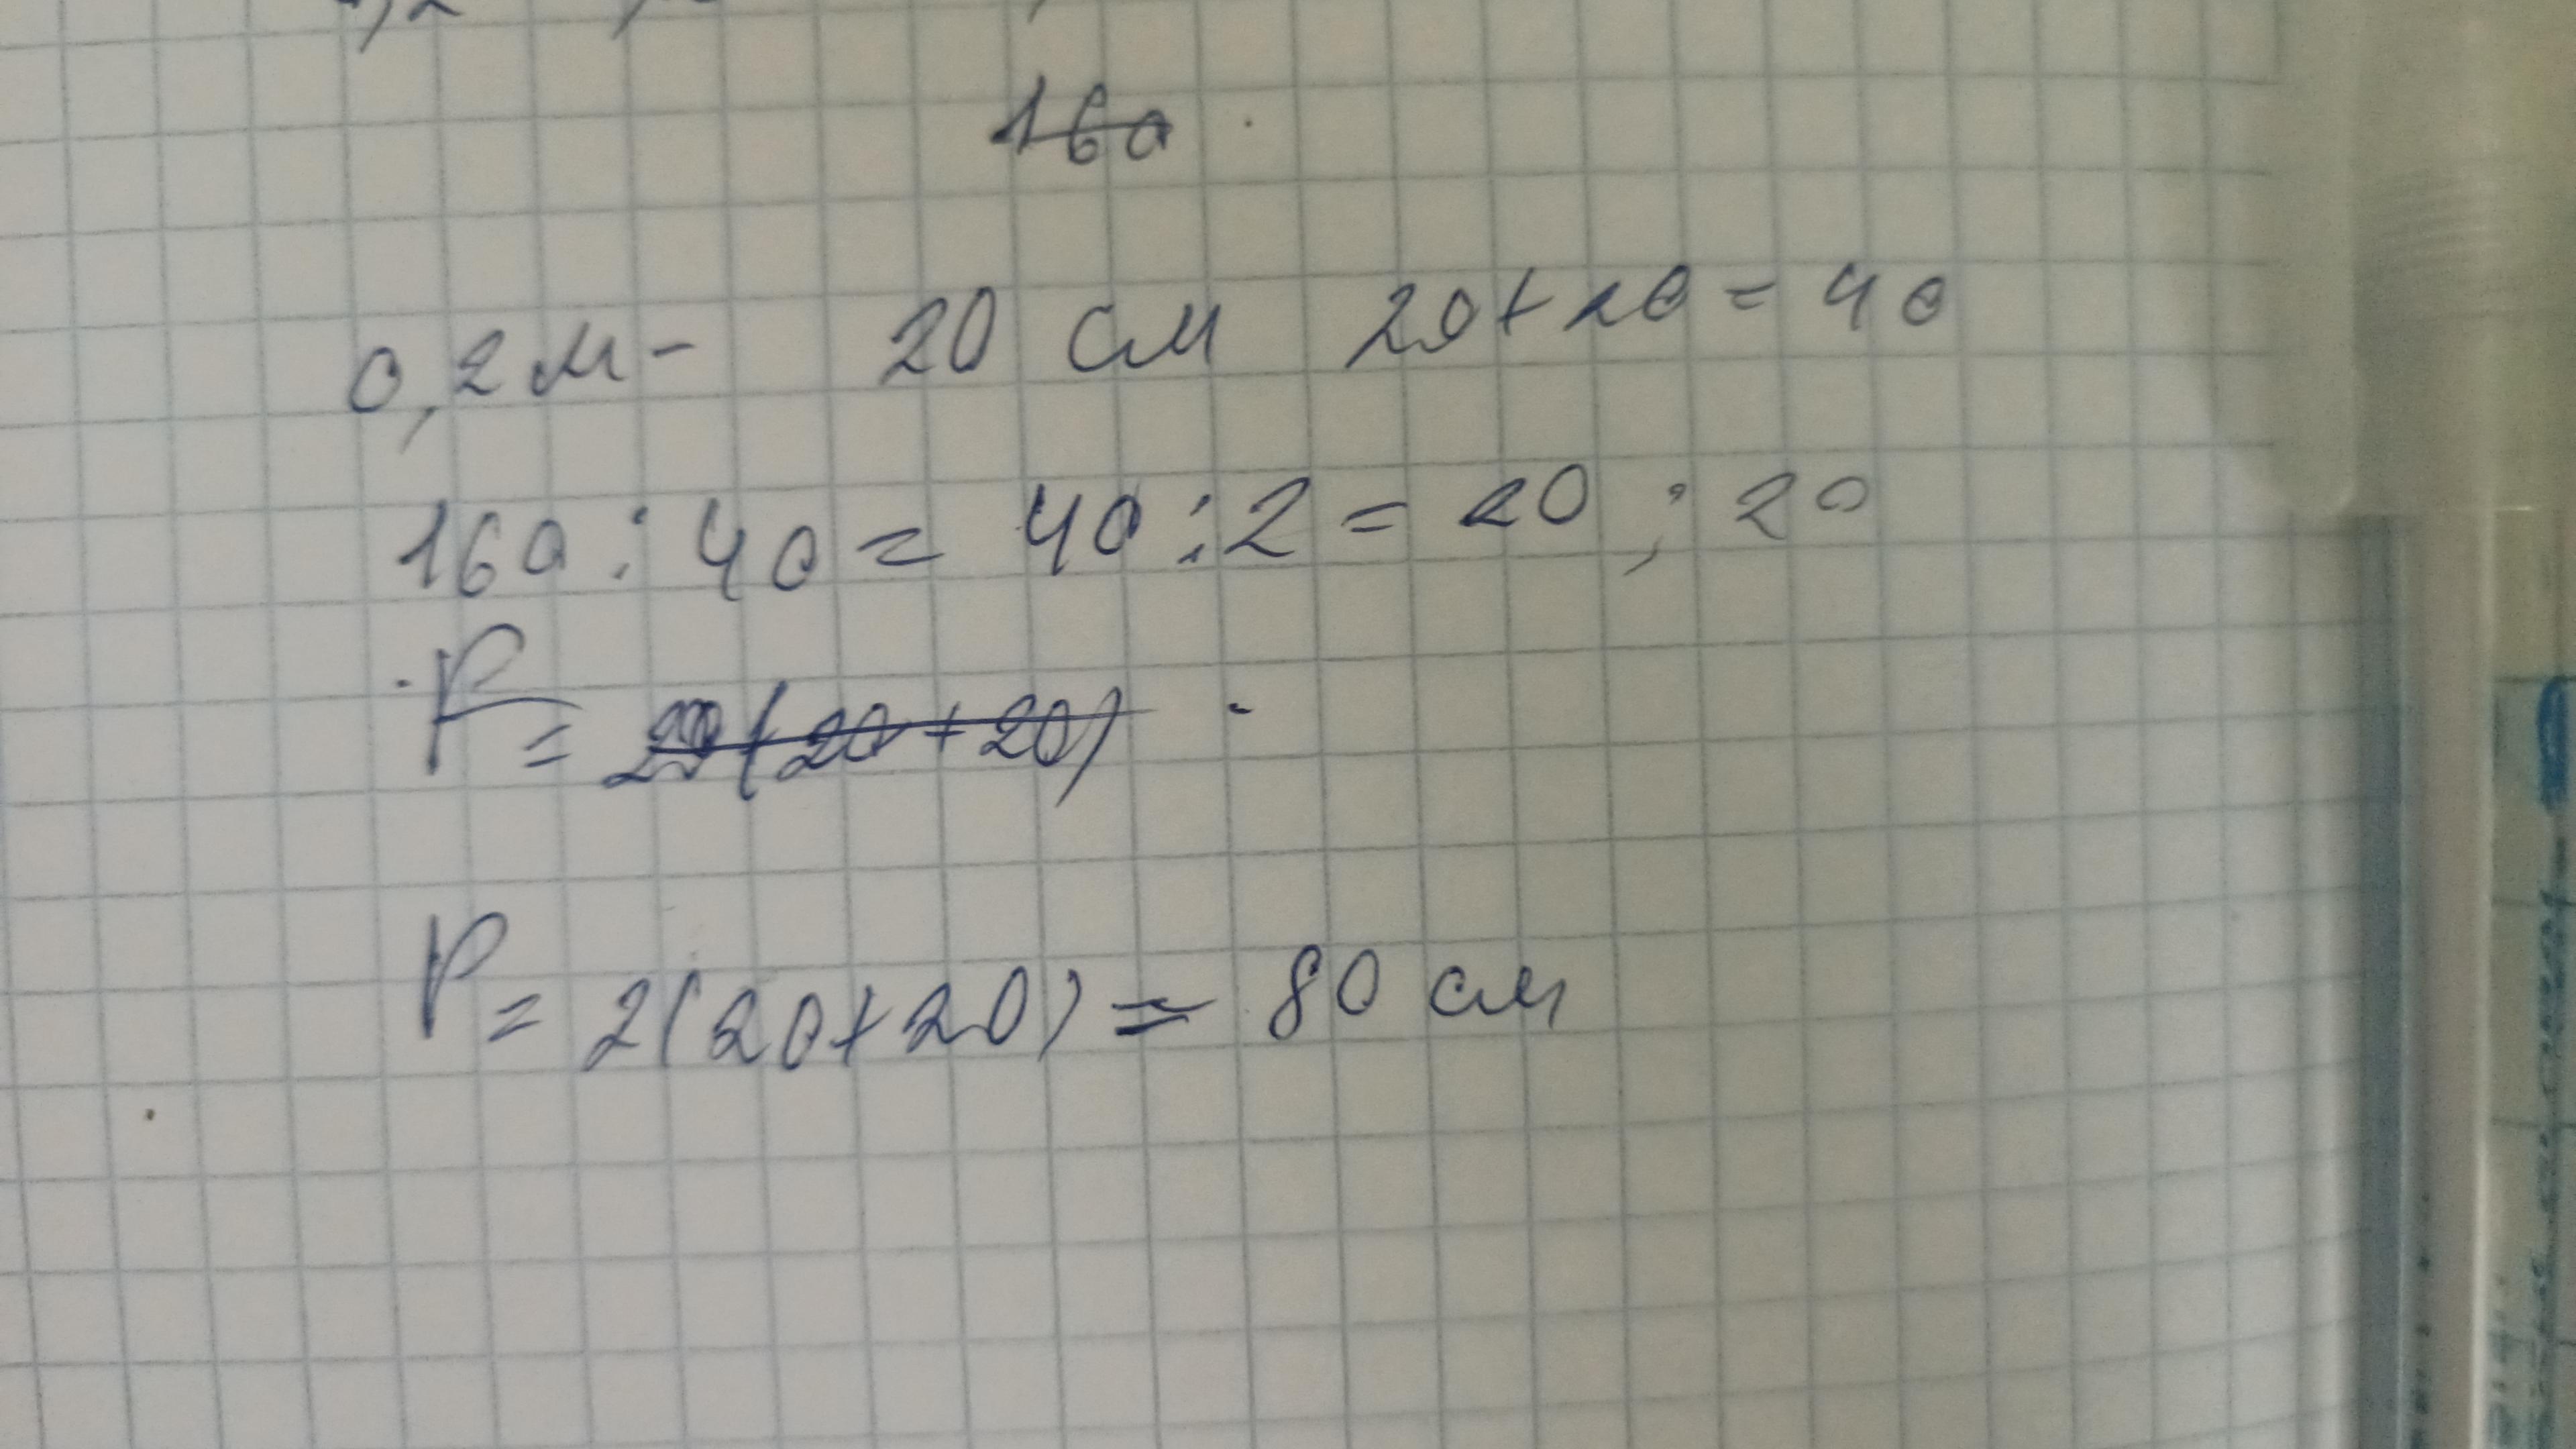 160
0,2 м - 20 см 20+20 = 40
160 : 40 = 40 : 2 = 20 ; 20
P = 20(20+20)
P = 2(20+20) = 80 см